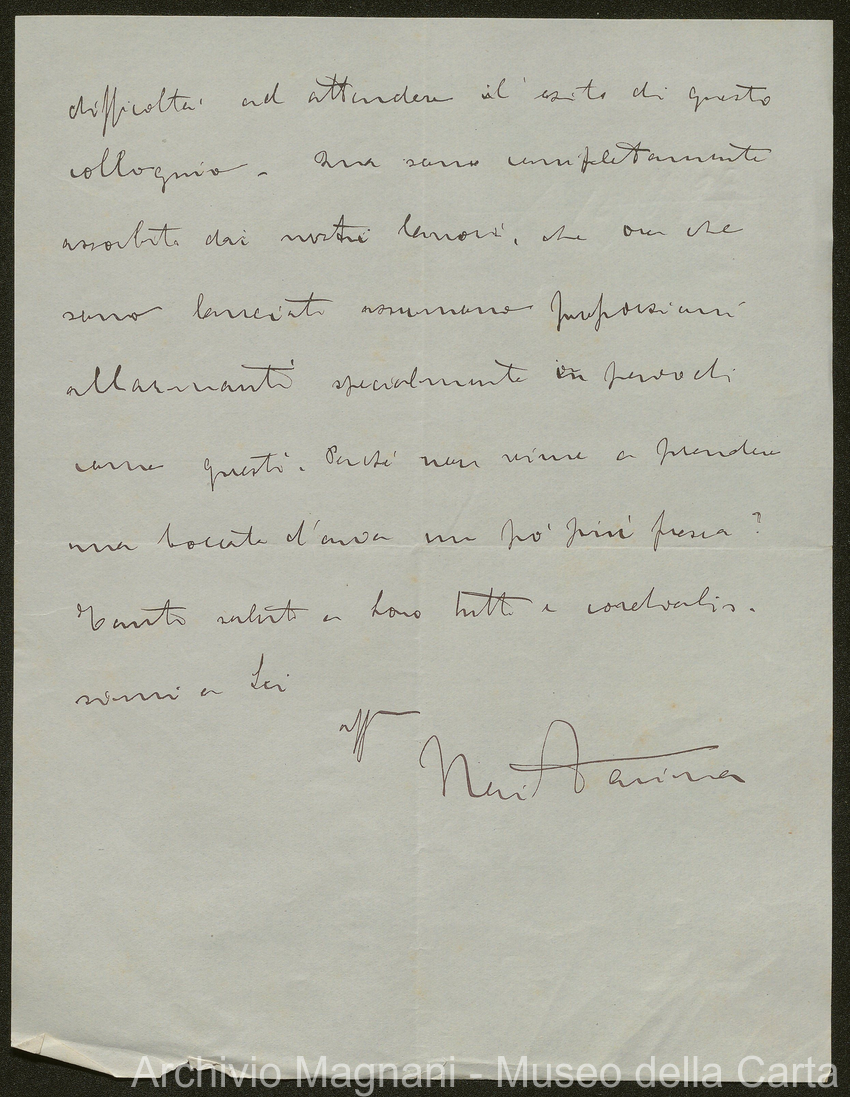 difficolta' ad attendere l'esito di questo
colloquio. Ma sono completamente
assorbito dai nostri lavori, che ora che
sono lanciati assumono proporzioni
allarmanti specialmente in periodi
come questi. Perché non viene a prendere
una boccata d'aria un pó piú fresca?
Tanti saluti a Loro tutti e cordialis-
simi a Lei
aff
Neri Farina
Archivio Magnani - Museo della Carta